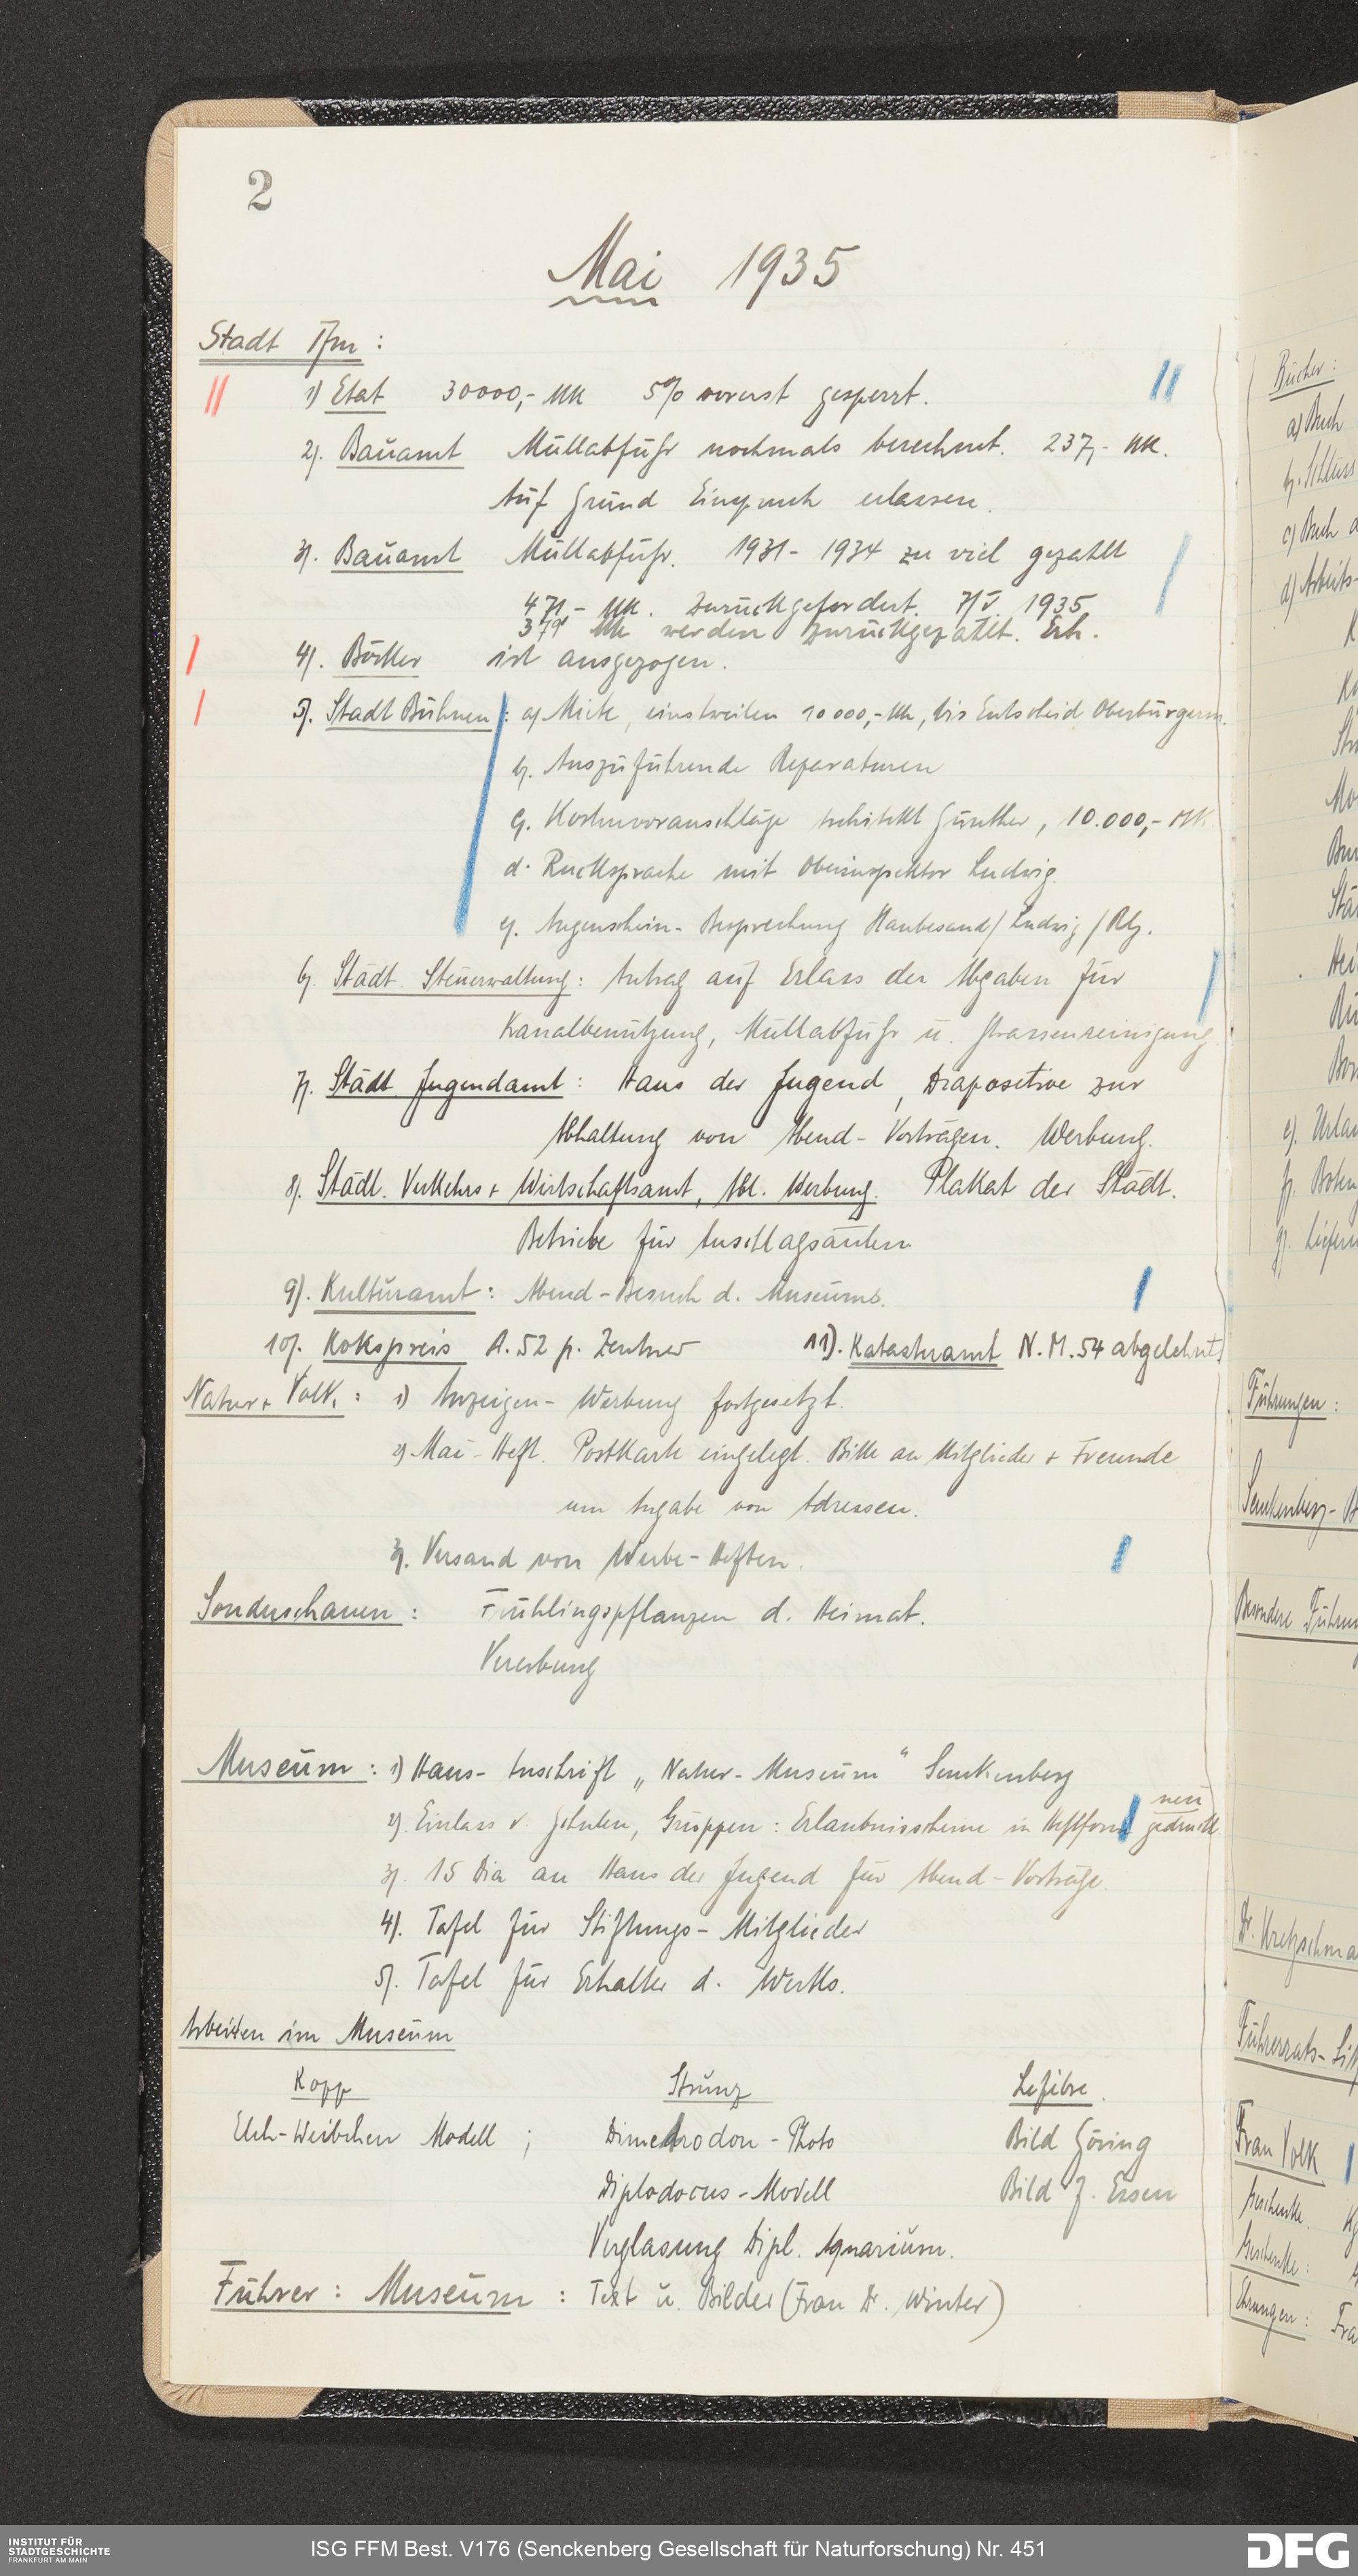 2
Mai 1935
Stadt Ffm :
1) Etat 30000,- Mk 5% vorerst gesperrt.
2). Bauamt Müllabfuhr nochmals berechnet. 237,- Mk.
Auf Grund Einspruch erlassen.
3). Bauamt Müllabfuhr. 1931 - 1934 zu viel gezahlt
471,- Mk. Zurückgefordert. 7/V. 1935
379 Mk werden zurückgezahlt. Erh.
4). Böcker ist ausgezogen.
5). Stadt Bühnen : a) Miete, einstweilen 10000,- Mk, bis Entscheid Oberbürgerm.
b). Auszuführende Reparaturen
c). Kostenvoranschläge Architekt Günther, 10.000,- Mk
d. Rucksprache mit Oberinspektor Ludwig.
e). Augenschein - Besprechung Haubesand / Ludwig / Rlg.
6). Städt. Steuerwaltung : Antrag auf Erlass der Abgaben für
Kanalbenutzung, Müllabfuhr u. Strassenreinigung.
7). Städt. Jugendamt : Haus der Jugend, Diapositive zur
Abhaltung von Abend - Vorträgen. Werbung.
8). Städt. Verkehrs + Wirtschaftsamt, Abt. Werbung. Plakat der Städt.
Betriebe für Anschlagsäulen
9). Kulturamt : Abend - Besuch d. Museums.
10). Kokspreis A.52 p. Zentner 11). Katasteramt N.M.54 abgelehnt
Natur + Volk. : 1) Anzeigen - Werbung fortgesetzt.
2) Mai - Heft. Postkarte eingelegt. Bitte an Mitglieder + Freunde
um Angabe von Adressen.
3). Versand von Werbe - Heften.
Sonderschauen : Frühlingspflanzen d. Heimat.
Vererbung
Museum : 1) Haus - Inschrift „ Natur - Museum “ Senckenberg
neu
2). Einlass v. Schulen, Gruppen : Erlaubnisscheine in Heftform gedruckt.
3). 15 Dia an Haus der Jugend für Abend - Vorträge.
4). Tafel für Stiftungs - Mitglieder
5). Tafel für Erhalter d. Werks.
Arbeiten im Museum
Kopp Strunz Lefèbre.
Elch - Weibchen Modell ; Dimetrodon - Photo Bild Göring
Diplodocus - Modell Bild f. Essen
Verglasung Dipl. Aquarium.
Führer : Museum : Text u. Bilder (Frau Dr. Winter)
Bücher :
a) Buch
b). Schluss
c) Buch
d) Arbeits-
e).
f). Boten
g).
Führungen :
Senckenberg -
Besondere Führun
Dr. Kretzschma
Führerrats -
Frau Volk
Geschenke.
Geschenke :
Ehrungen : Fra
INSTITUT FÜR
STADTGESCHICHTE
FRANKFURT AM MAIN
ISG FFM Best. V176 (Senckenberg Gesellschaft für Naturforschung) Nr. 451
DFG